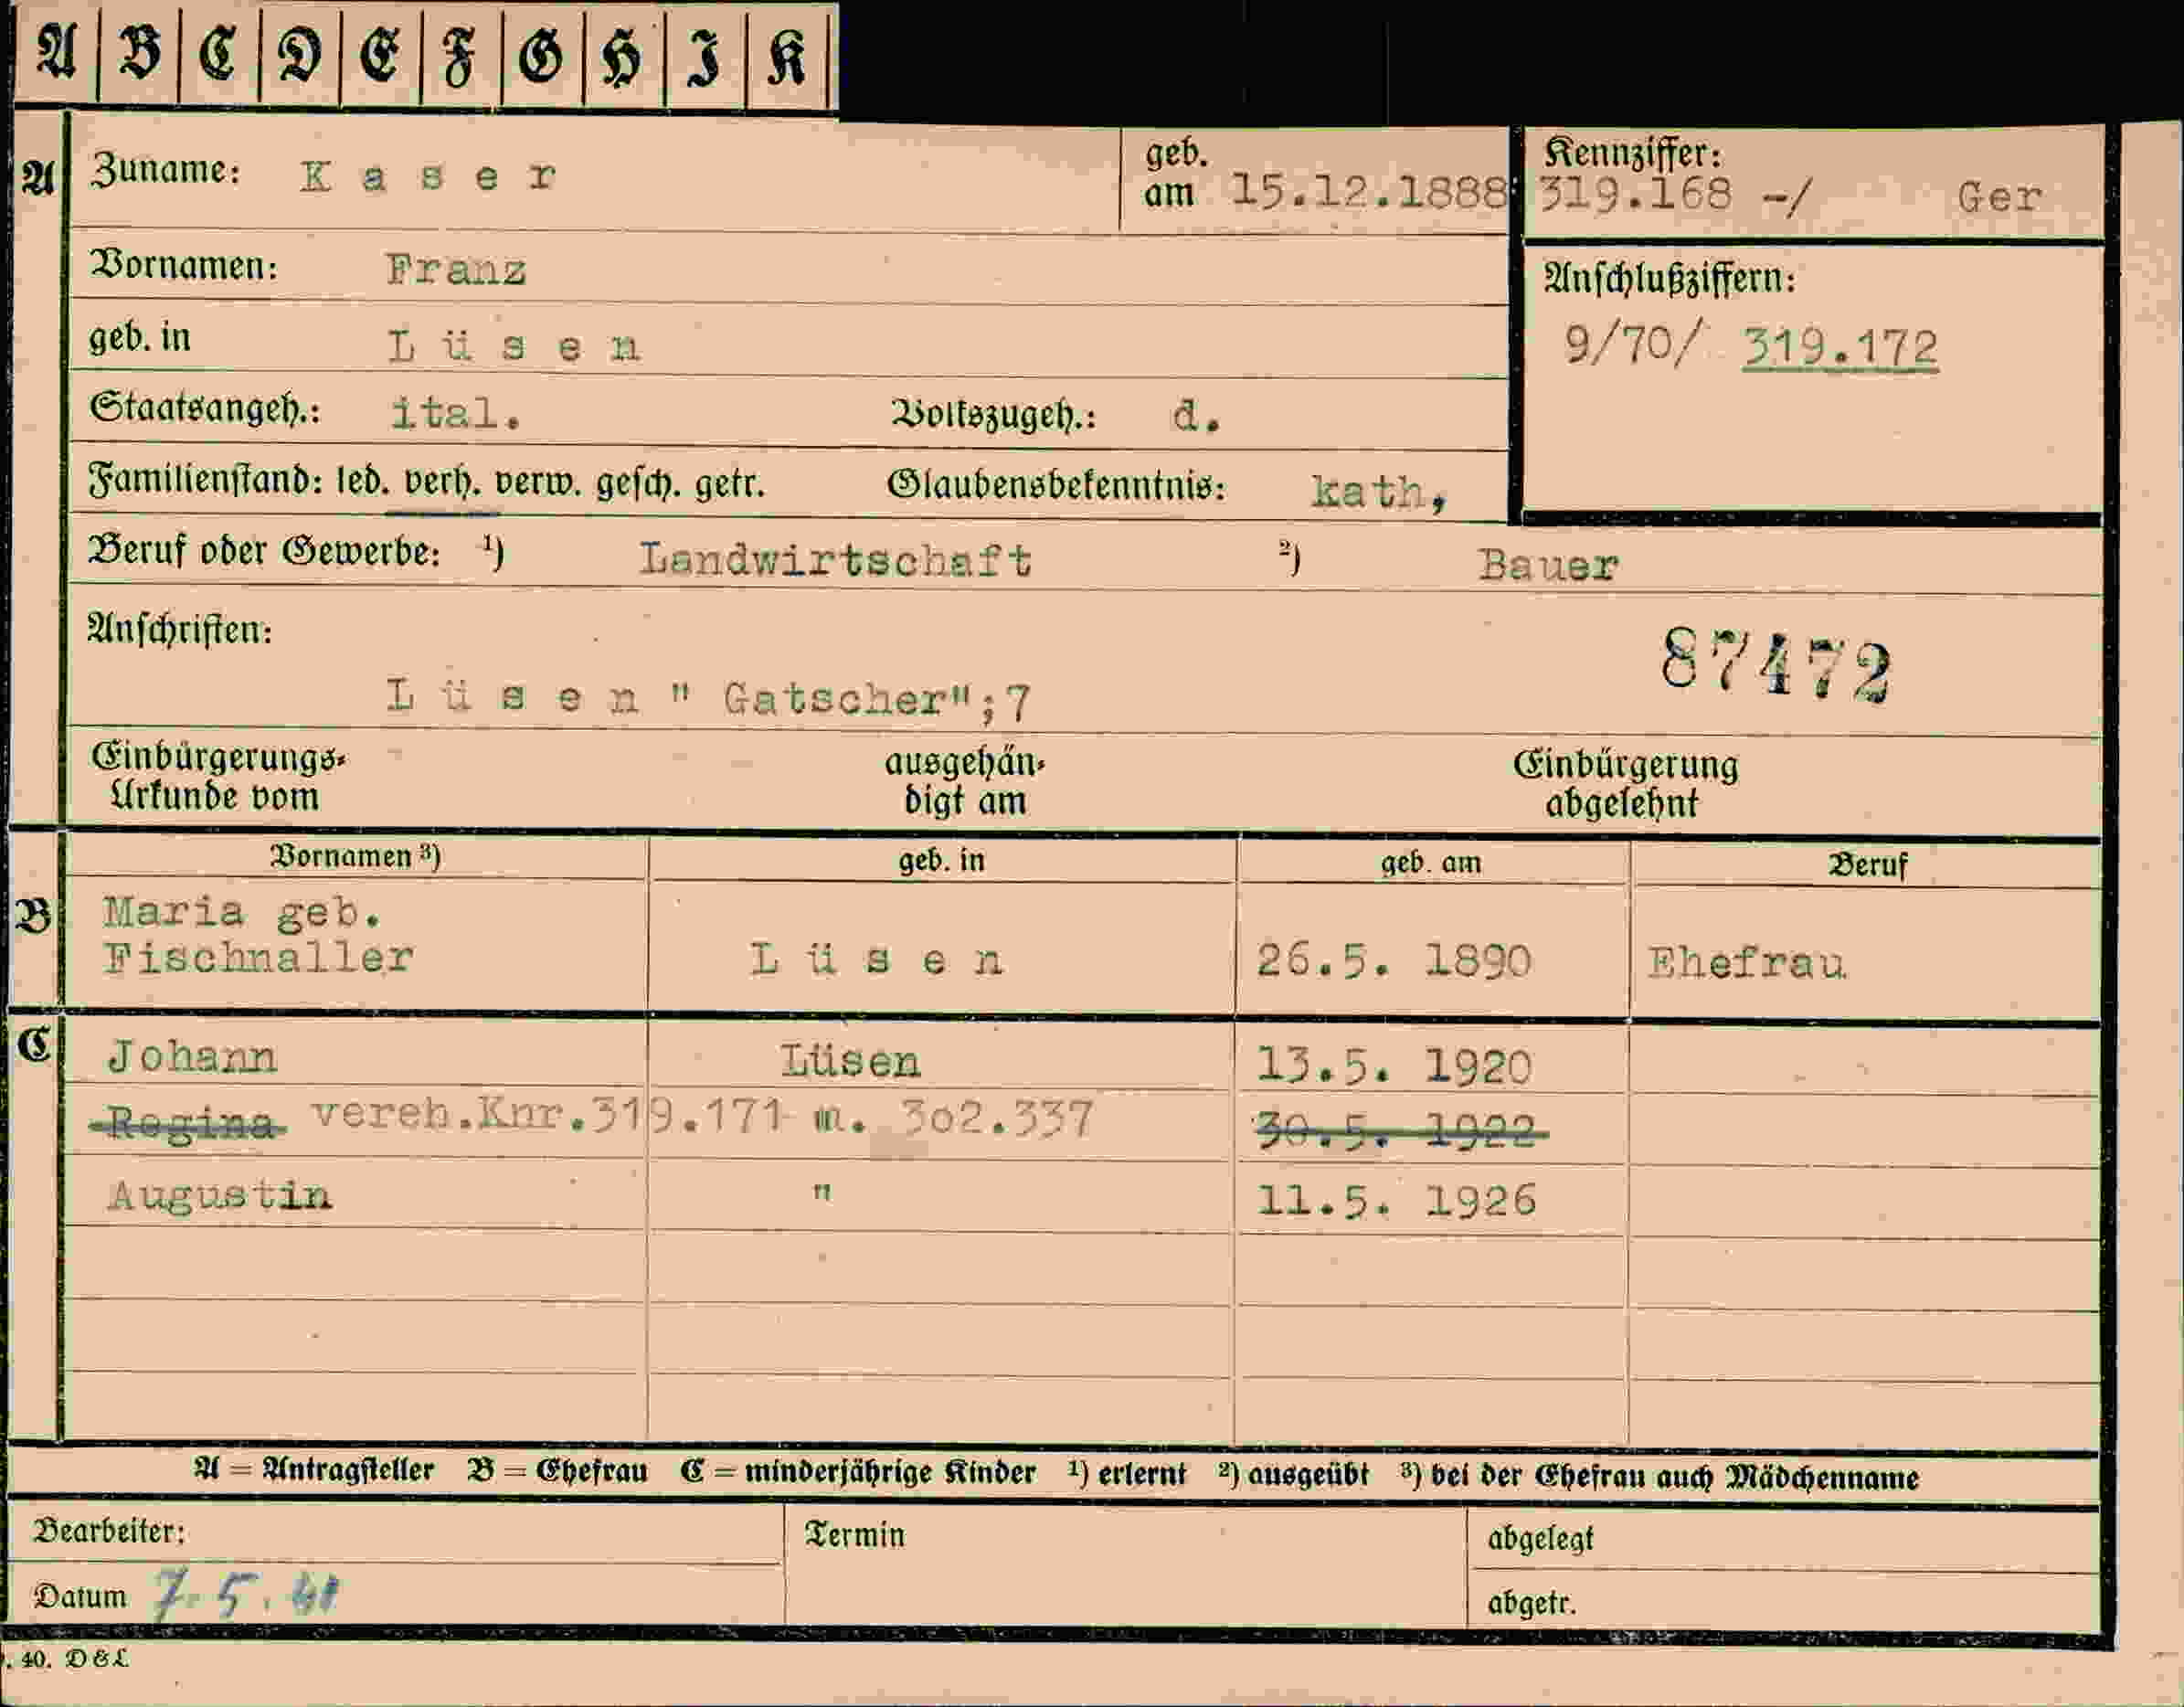 A B C D E F G H I K
A Zuname: K a s e r geb. am 15.12.1888 Kennziffer: 319.168 -/ Ger
Vornamen: Franz
Anschlußziffern:
geb. in L ü s e n 9/70/ 319.172
Staatsangeh.: ital. Volkszugeh.: d.
Familienstand: led. verh. verw. gesch. getr. Glaubensbekenntnis: kath,
Beruf oder Gewerbe: ¹) Landwirtschaft ²) Bauer
Anschriften:
87472
L ü s e n " Gatscher";7
Einbürgerungs- ausgehän- Einbürgerung
Urkunde vom digt am abgelehnt
Vornamen ³) geb. in geb. am Beruf
B Maria geb.
Fischnaller L ü s e n 26.5. 1890 Ehefrau
C Johann Lüsen 13.5. 1920
Regina vereh.Knr.319.171 m. 3o2.337 30.5. 1922
Augustin " 11.5. 1926
A = Antragsteller B = Ehefrau C = minderjährige Kinder ¹) erlernt ²) ausgeübt ³) bei der Ehefrau auch Mädchenname
Bearbeiter: Termin abgelegt
Datum 7.5.41 abgetr.
. 40. D & L